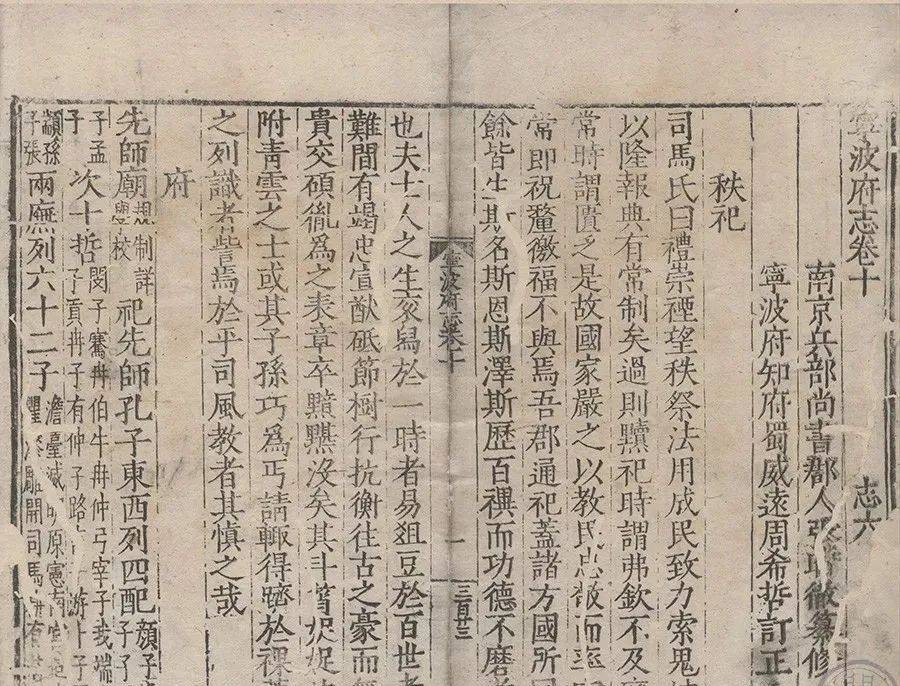 寧波府志卷十 志六
南京兵部尚書郡人張時徹纂修
寧波府知府蜀威遠周希哲訂正
秩祀
司馬氏曰禮崇禋望秩祭法用成民致力索鬼
以隆報典有常制矣過則黷祀時謂弗欽不及
常時謂匱乏是故國家嚴之以教民忠敬而
常即祝釐徼福不與焉吾郡通祀蓋諸方國所
餘皆生斯名斯恩斯澤斯歷百禩而功德不磨
寧波府志卷十
一
三百三
也夫士人之生亥舄於一時者易俎豆於百世
難間有竭忠宣猷砥節樹行抗衡往古之豪而
貴交碩胤為之表章卒黯黮沒矣其斗筲
附青雲之士或其子孫巧為丐請輙得躋於
之列識者訾焉於乎司風教者其慎之哉
府
先師廟規制詳學校祀先師孔子東西列四配顏子
子孟子次十哲閔子騫冉伯牛冉仲弓宰子我端子貢冉子有仲子路
顓孫子張兩廡列六十二子澹臺滅明原憲南宮漆雕開司馬